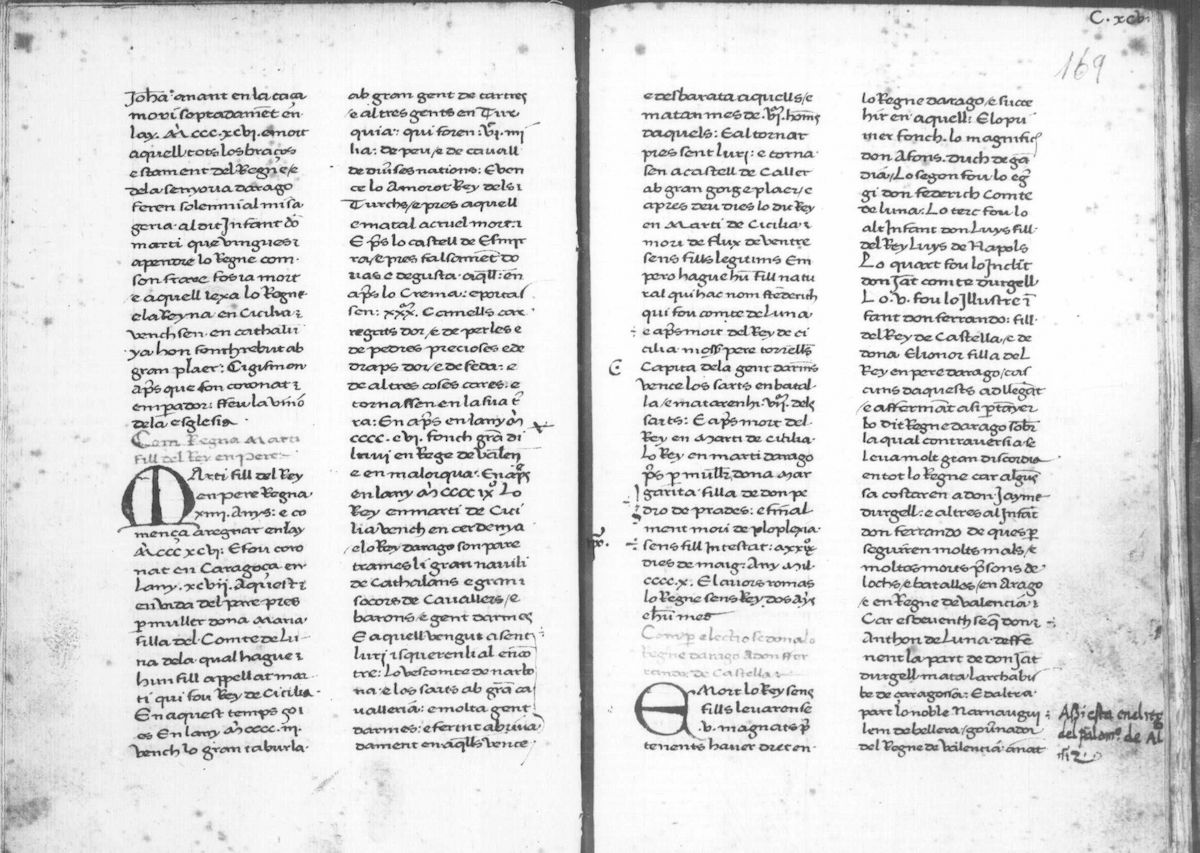 Joha anant en la caca
mori soptadament en
lay. M CCC.XCVI. e mort
aquell tots los braços
e stament del Regne / e
dela senyoria darago
feren solemnial misa
geria al dit Infant do
marti que vingues i
apendre lo Regne com
son frare fos ia mort
e aquell lexa lo Regne
e la Reyna en Cicilia i
vench sen en cathalu
ya hon fonch rebut ab
gran plaer: Cigismon
aps que fon coronat i
emperador: ffeu la vnio
dela esglesia
Com Regna Marti
fill del Rey en pere
MArti fill del Rey
en pere Regna
xiiii. Anys: e co
mença a regnar en lay
M CCC XCVI: E fou coro
nat en Caragoça en
Lany. xcvii. Aquest i
en vida del pare pres
p muller dona Maria
filla del Comte de Lu
na dela qual hague i
hun fill appellat mar
ti qui fou Rey de Cicilia
En aquest temps
es En lany M CCCC.III.
vench lo gran taburla
ab gran gent de cartres
e altres gents en Tur
quia: qui foren: VII. mi
lia: de peu / e de cavall
de diuses nations: E ven
ce lo Amorot Rey dels i
Turchs / e pres aquell
e matal a cruel mort: i
E ps lo castell de Esmir
ra / e pres falsament do
nas e degusta aqll: en
aps lo Crema: e portas
sen: xxx. Camells car
regats dor / e de perles e
de pedres precioses e de
draps dor / e de seda: e
de altres coses cares: e
tornassen en la sua t
ra: En aps en lany M
CCCC. e VI. fonch gra di
luvi en Regne de Valen
e en malorqua. En aps
en lany M CCCC IX. Lo
Rey en marti de Cici
lia vench en cerdenya
e lo Rey darago son pare
trames li gran navili
de Cathalans e gran i
socors de Cavallers / e
barons / e gent darmes
E aquell vengut a sent
luri isqueren li al enco
tre: Lo vescomte de narbo
na: e los sarts ab gra ca
valleria: e molta gent
darmes: e ferint abriva
dament en aqlls vence
C. xcvi
169
e desbarata aquells / e
matan mes de. VII. homs
daquels: E al tornat
pres sent luri: e torna
sen a castell de Caller
ab gran goig e plaer / e
apres deu dies lo dit Rey
en Marti de Cicilia
mori de flux de ventre
sens fills legitims Em
pero hague hu fill natu
ral qui hac nom ffederich
qui fou comte de Luna
e aps mort del Rey de ci
cilia moss pere torrells
Capita dela gent darms
vence los sarts en batal
la / e mataren hi. VII. dels
sarts: E aps mort del
Rey en Marti de Cicilia
Lo Rey en marti darago
ps p mullr dona mar
garita filla de don pe
dro de prades: e final
ment mori de ploplexia
sens fill Intestat: a xxix
dies de maig: Any Mil
CCCC. x. E lavors romas
lo Regne sens Rey dos ays
e hu mes
Com p electio se dona lo
Regne darago A don ffer
rando de Castella i
E Mort lo Rey sens
fills levaren se
.v. magnats p
tenents haver dret en
lo Regne darago / e succe
hir en aquell: E lo pri
mer fonch. lo magnifich
don Afons. duch de ga
dia / Lo segon fou lo eg
gi don federich Comte
de luna. Lo terc fou lo
alt Infant don Luys fill
del Rey Luys de Napols
Lo quart fou lo Inclit
don Jau comte durgell
Lo. v. fou lo Illustre i
fant don ferrando: fill
del Rey de Castella / e de
dona Elionor filla del
Rey en pere darago / cas
cuns daquests adlegat
e affermat a si ptanyer
lo dit Regne darago sobr
la qual contraversia se
leva molt gran discordia
en tot lo Regne car alguns
sa costaren a don Jayme
durgell: e altres al Infat
don ferrando de ques p
seguiren molts mals / e
moltas morts psons de
lochs / e batalles / en Arago
e en Regne de Valencia i
Car esdevench se q don i
Anthon de Luna deffe
nent la part de don Jau
durgell mata larchabis
be de caragossa: E daltra
part lo noble Narnau gui
lem de bellera / govnador
del Regne de Valencia anat
Assi esta en el reg
del palom. de Al